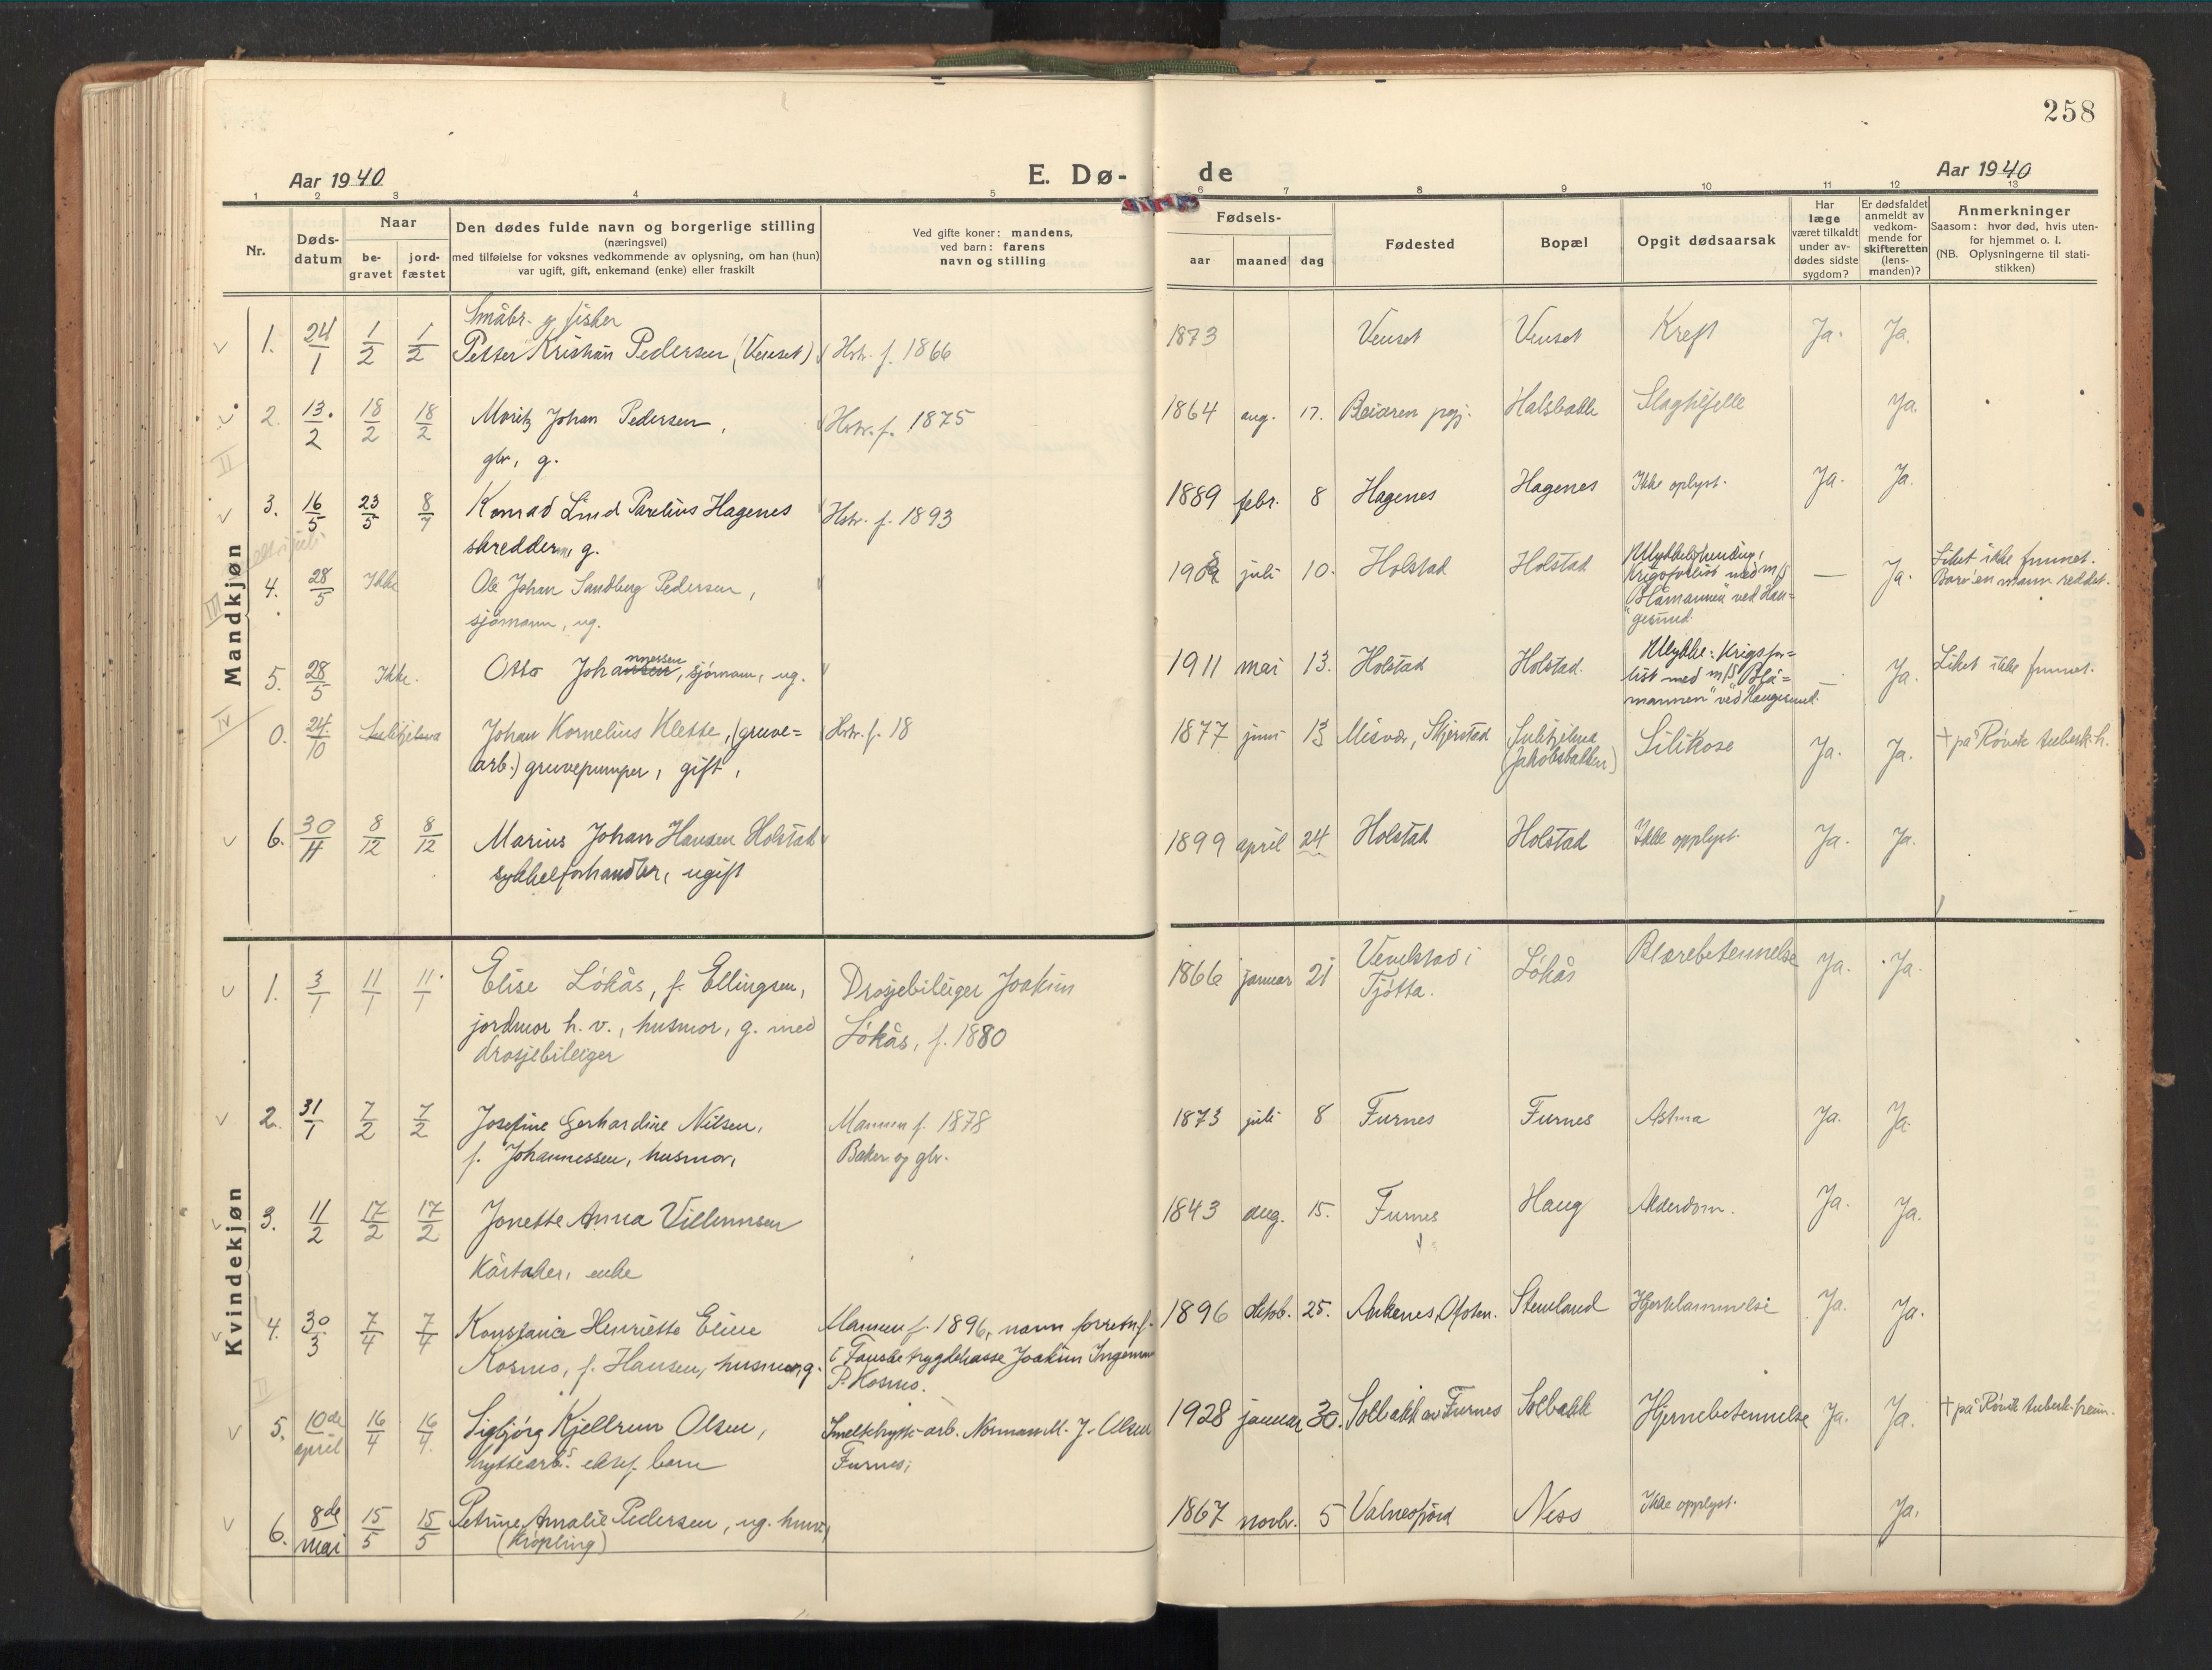 258
Aar 1940
E. Dø-
de
Aar 1940
1 2 3 4 5 6 7 8 9 10 11 12 13
Nr.
Døds-
datum
Naar
be-
gravet
jord-
fæstet
Den dødes fulde navn og borgerlige stilling
(næringsvei)
med tilføielse for voksnes vedkommende av oplysning, om han (hun)
var ugift, gift, enkemand (enke) eller fraskilt
Ved gifte koner: mandens,
ved barn: farens
navn og stilling
Fødsels-
aar maaned dag
Fødested
Bopæl
Opgit dødsaarsak
Har
læge
været tilkaldt
under av-
dødes sidste
sygdom?
Er dødsfaldet
anmeldt av
vedkom-
mende for
skifteretten
(lens-
manden)?
Anmerkninger
Saasom: hvor død, hvis uten-
for hjemmet o. l.
(NB. Oplysningerne til stati-
stikken)
Mandkjøn
Småbr. og fisker
1. 24/1 1/2 1/2 Petter Kristian Pedersen (Venset) Hstr. f. 1866 1873 Venset Venset Kreft Ja. Ja.
2. 13./2 18/2 18/2 Moritz Johan Pedersen, Hstr. f. 1875 1864 aug. 17. Beiaren pgj. Halsbakk Slagtilfelle Ja.
gbr, g.
II
3. 16/5 23/5 8/7 Konrad Lind Parelius Hagenes Hstr. f. 1893 1889 febr. 8 Hagenes Hagenes Ikke oplyst. Ja. Ja.
skredder, g.
III
4. 28/5 Ikke Ole Johan Sandberg Pedersen, juli 10. Holstad Holstad Ulykkeshending, — Ja. Liket ikke funnet.
sjømann, ug. Krigsforlist med m/s Bare én mann reddet.
"Blåmannen" ved Hau-
gesund.
5. 28/5 Ikke. Otto Johannessen, sjømann, ug. 1911 mai 13. Holstad Holstad. Ulykke: Krigsfor- — Ja. Liket ikke funnet.
list med m/S "Blå-
mannen" ved Haugesund.
IV
0. 24./10 Sulitjelma Johan Kornelius Klette, (gruve- Hstr. f. 18 1877 juni 13 Misvær, Skjerstad Sulitjelma Silikose Ja. Ja. † på Røvik tuberk.h.
arb.) gruvepumper, gift, (Jakobsbakken)
6. 30/11 8/12 8/12 Marius Johan Hansen Holstad 1899 april 24 Holstad Holstad Ikke opplyst. Ja. Ja.
sykkelforhandler, ugift
Kvindekjøn
1. 3/1 11/1 11/1 Elise Løkås, f. Ellingsen, Drosjebileiger Joakim 1866 januar 21 Venelstad i Løkås Blærebetennelse Ja. Ja.
jordmor h. v., husmor, g. med Løkås, f. 1880 Tjøtta.
drosjebileiger
2. 31/1 7/2 7/2 Josefine Gerhardine Nilsen, Mannen f. 1878 1873 juli 8 Furnes Furnes Astma Ja. Ja.
f. Johannessen, husmor, Baker og gbr.
3. 11/2 17/2 17/2 Jonette Anna Villumsen 1843 aug. 15. Furnes Haug Alderdom. Ja. Ja.
Kårtaker, enke
4. 30/3 7/4 7/4 Konstanse Henriette Eline Mannen f. 1896, navn forretn.f. 1896 25. Ankenes, Ofoten. Stemland Hjertelammelse Ja. Ja.
Kosmo, f. Hansen, husmor, g. i Fauske trygdekasse Joakim Ingemar
P. Kosmo.
5. 10de april 16/4 16/4. Sigbjørg Kjellrun Olsen, Smeltehytte-arb. Norman M. J. Olsen 1928 januar 30. Solbakk av Furnes Solbakk Hjernebetennelse Ja. Ja. † på Røvik tuberk.heim.
hyttearb.s ektef. barn Furnes,
6. 8de mai 15/5 15/5 Petrine Amalie Pedersen, ug. 1867 novbr. 5 Valnesfjord Ness Ikke opplyst. Ja.
(krøpling)